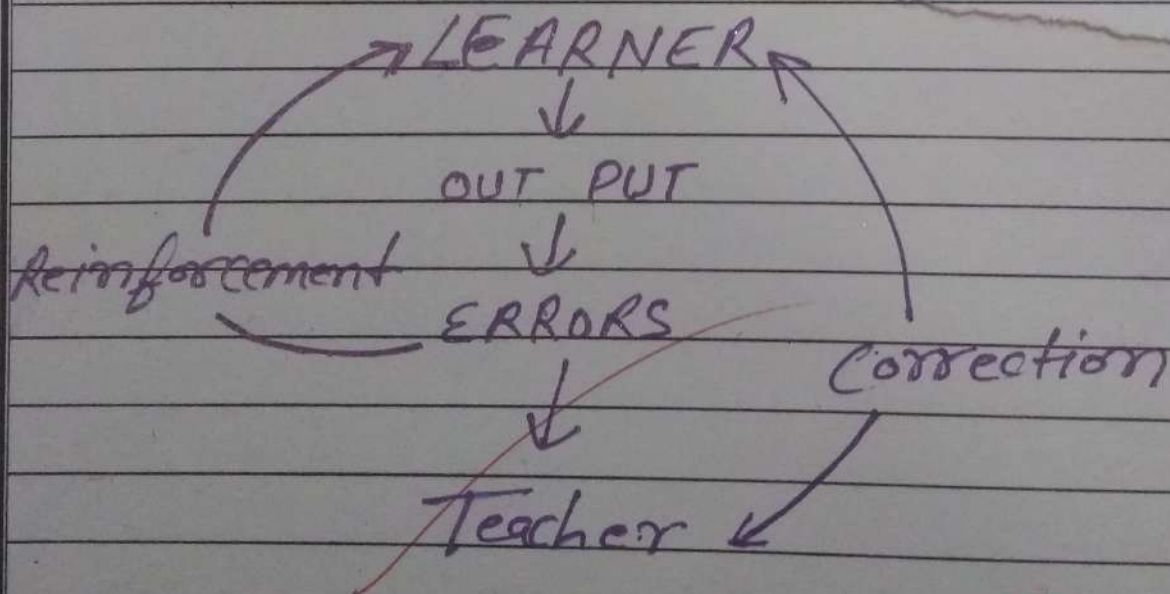 LEARNER
OUT PUT
Reinforcement
ERRORS
Correction
Teacher